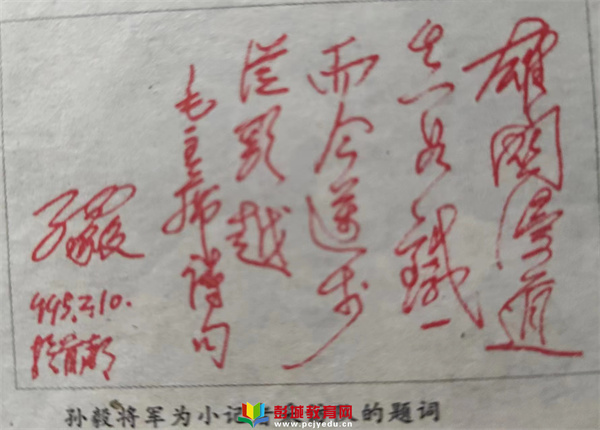 雄關漫道
真如鐵
而今邁步
從頭越
毛主席诗句
孙毅
1995.2.10.
於首都
孙毅将军为小记 的题词
彭城教育网
www.pcjyedu.cn